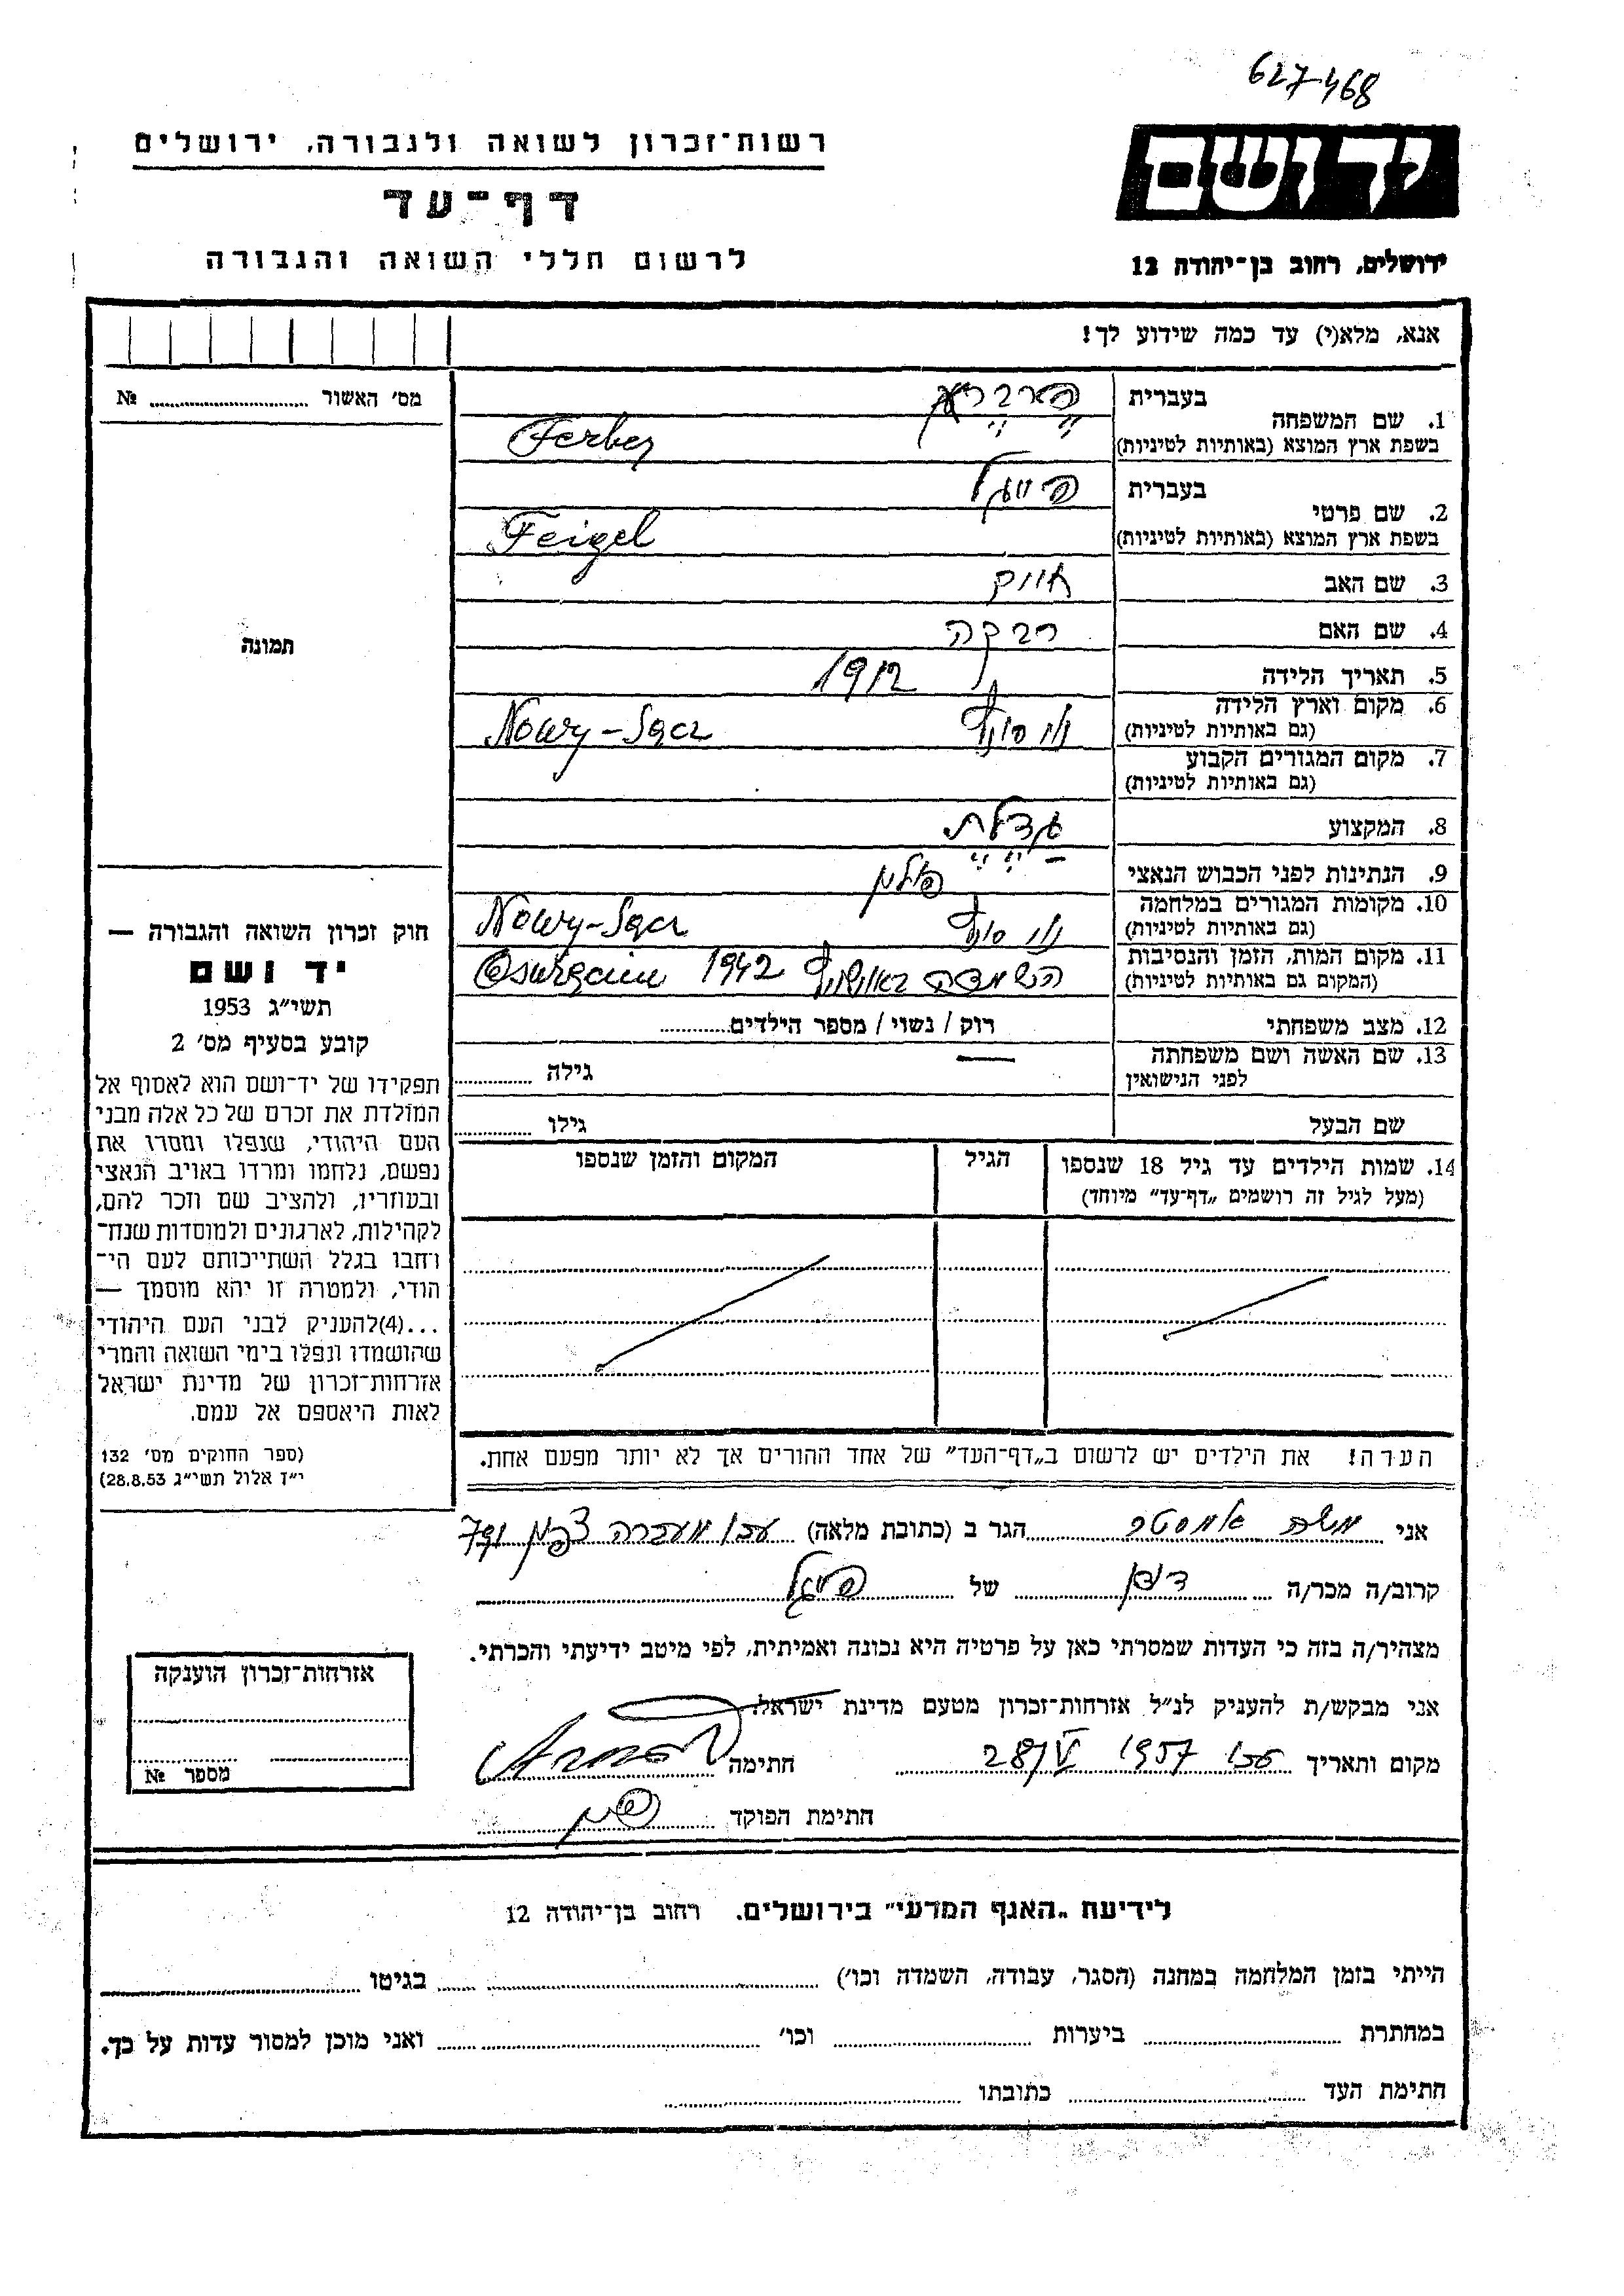 627468
יד ושם
ירושלים, רחוב בן־יהודה 12
רשות־זכרון לשואה ולגבורה, ירושלים
דף־עד
לרשום חללי השואה והגבורה
אנא, מלא(י) עד כמה שידוע לך!
מס׳ האשור № 
תמונה
חוק זכרון השואה והגבורה —
יד ושם
תשי״ג 1953
קובע בסעיף מס׳ 2
תפקידו של יד־ושם הוא לאסוף אל
המולדת את זכרם של כל אלה מבני
העם היהודי, שנפלו ומסרו את
נפשם, נלחמו ומרדו באויב הנאצי
ובעוזריו, ולהציב שם וזכר להם,
לקהילות, לארגונים ולמוסדות שנח־
רחבו בגלל השתייכותם לעם הי־
הודי, ולמטרה זו יהא מוסמך —
...(4)להעניק לבני העם היהודי
שהושמדו ונפלו בימי השואה והמרי
אזרחות־זכרון של מדינת ישראל
לאות היאספם אל עמם.
(ספר החוקים מס׳ 132
י״ז אלול תשי״ג 28.8.53)
1. שם המשפחה
בעברית
בשפת ארץ המוצא (באותיות לטיניות) Ferber
2. שם פרטי
בעברית פייגל
בשפת ארץ המוצא (באותיות לטיניות) Feigel
3. שם האב
4. שם האם רבקה
5. תאריך הלידה 1912
6. מקום וארץ הלידה
(גם באותיות לטיניות) Nowy-Sącz
7. מקום המגורים הקבוע
(גם באותיות לטיניות)
8. המקצוע
9. הנתינות לפני הכבוש הנאצי פולין
10. מקומות המגורים במלחמה
(גם באותיות לטיניות) Nowy-Sącz
11. מקום המות, הזמן והנסיבות
(המקום גם באותיות לטיניות) הושמדה 1942
12. מצב משפחתי רוק / נשוי / מספר הילדים
13. שם האשה ושם משפחתה
לפני הנישואין — גילה
שם הבעל גילו
14. שמות הילדים עד גיל 18 שנספו הגיל המקום והזמן שנספו
(מעל לגיל זה רושמים „דף־עד״ מיוחד)
הערה! את הילדים יש לרשום ב„דף־העד״ של אחד ההורים אך לא יותר מפעם אחת.
אני משה הגר ב (כתובת מלאה) עכו מעברה צפון
קרוב/ה מכר/ה דודן של פייגל
מצהיר/ה בזה כי העדות שמסרתי כאן על פרטיה היא נכונה ואמיתית, לפי מיטב ידיעתי והכרתי.
אני מבקש/ת להעניק לנ״ל אזרחות־זכרון מטעם מדינת ישראל.
מקום ותאריך עכו 1957 28/V חתימה
חתימת הפוקד
אזרחות־זכרון הוענקה
מספר №
לידיעת „האגף המדעי״ בירושלים. רחוב בן־יהודה 12
הייתי בזמן המלחמה במחנה (הסגר, עבודה, השמדה וכו׳) בגיטו
במחתרת ביערות וכו׳ ואני מוכן למסור עדות על כך.
חתימת העד כתובתו